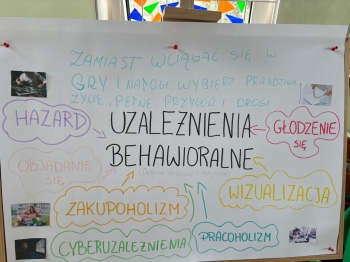 ZAMIAST WCIĄGAĆ SIĘ W
GRY I NAŁOGI WYBIERZ PRAWDZIWE
ŻYCIE, PEŁNE PRZYGÓD I DROGI
HAZARD
UZALEŻNIENIA
BEHAWIORALNE
GŁODZENIE
SIĘ
OBJADANIE
SIĘ
WIZUALIZACJA
ZAKUPOHOLIZM
CYBERUZALEŻNIENIA
PRACOHOLIZM